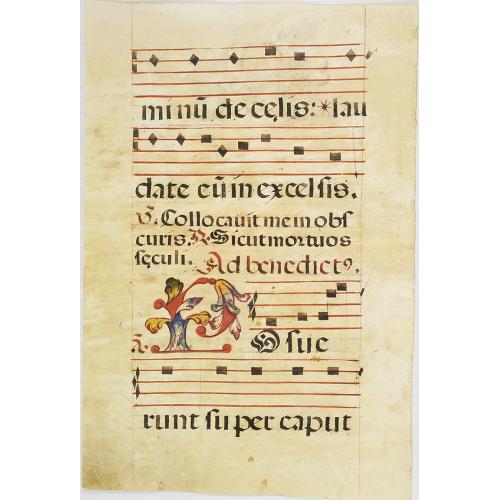 minũ de cęlis: *lau
date eũ in excelsis.
V. Collocavit me in obs
curis. R. Sicut mortuos
sęculi. Ad benedictꝰ.
A. Posue
runt super caput